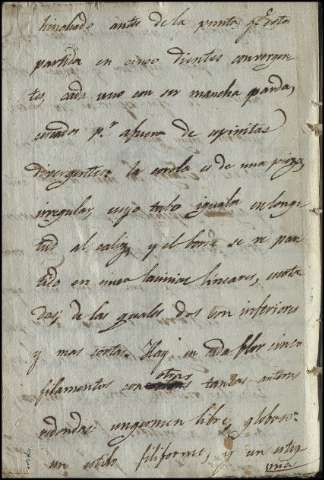 hinchado antes de la punta, q.e está
partida en cinco dientes convergen-
tes, cada uno con su mancha parda,
cercados p.r afuera de espinitas
divergentes: la corola es de una pieza
irregular, cuyo tubo iguala en longi-
tud al caliz, y el borde se re par-
tido en nueve lacinias lineares, escota-
das, de las quales dos son inferiores
y mas cortas. Hay en cada flor cinco
filamentos con otras tantas anteras
redondas: un germen libre, globoso:
un estilo filiforme, y un estig-
ma